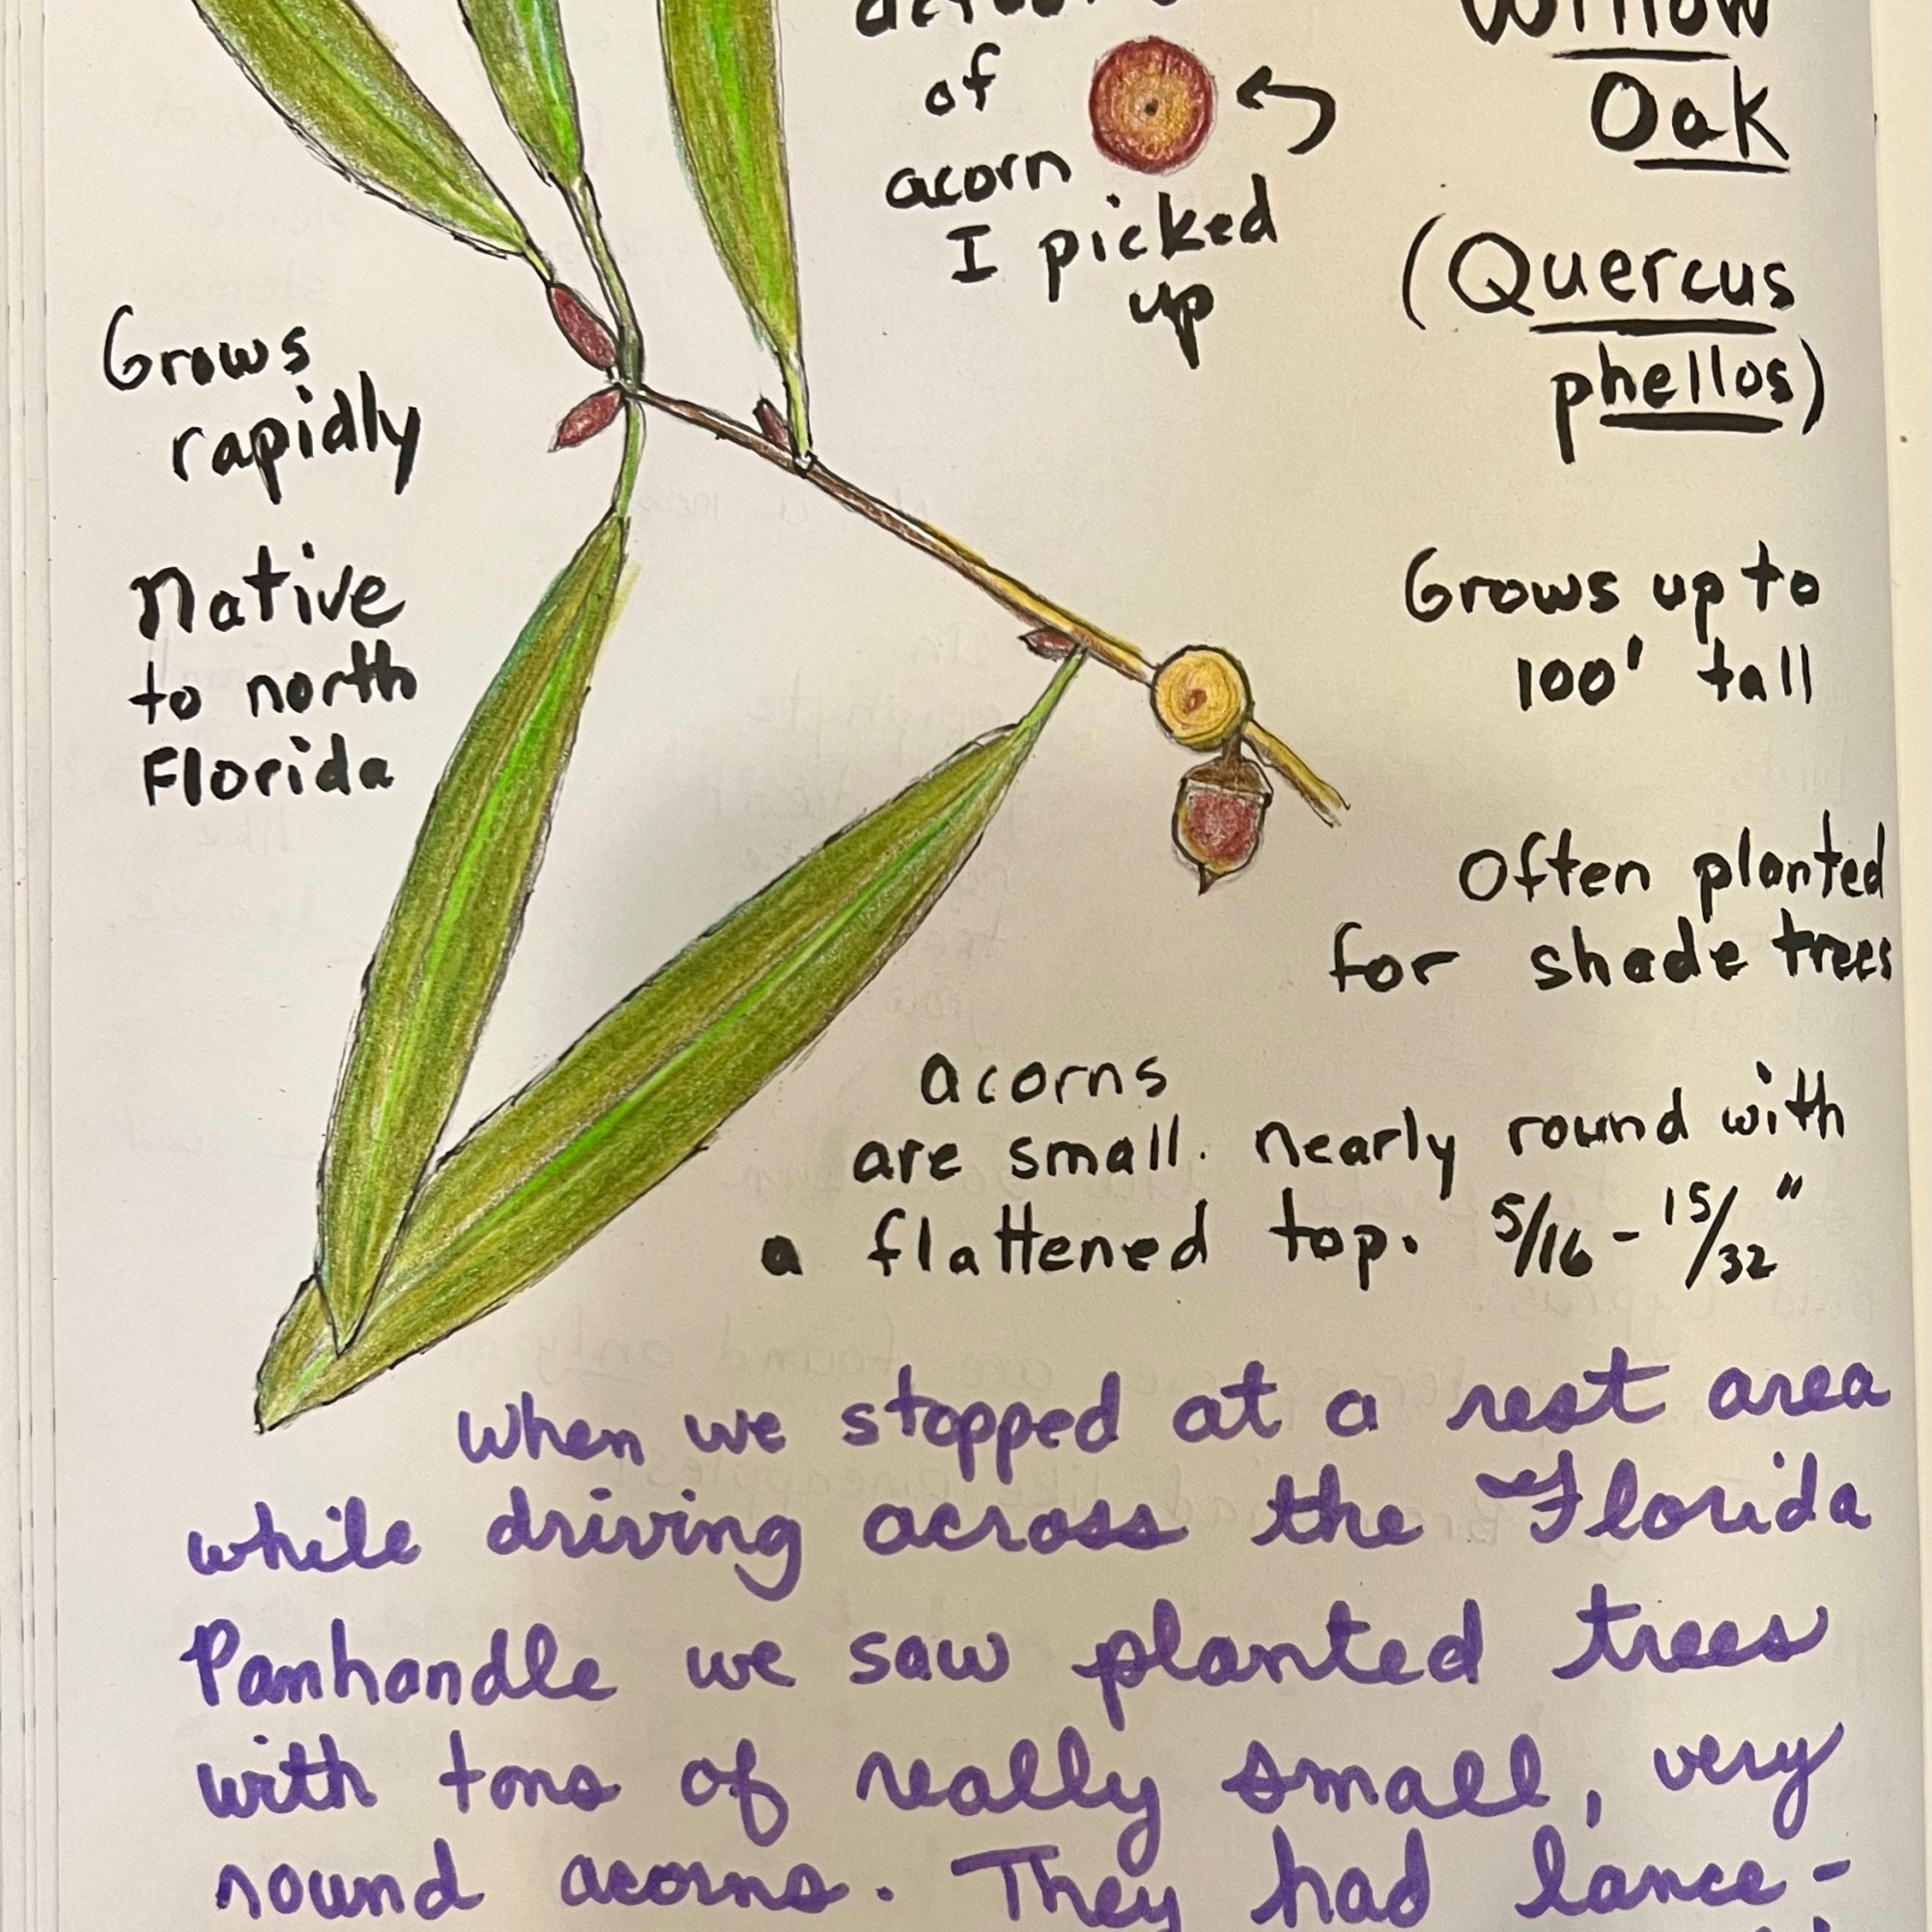 Willow
Oak
(Quercus
phellos)
of
acorn
I picked
up
Grows
rapidly
Native
to north
Florida
Grows up to
100' tall
Often planted
for shade trees
acorns
are small. nearly round with
a flattened top. 5/16 - 15/32"
When we stopped at a rest area
while driving across the Florida
Panhandle we saw planted trees
with tons of really small, very
round acorns. They had lance-